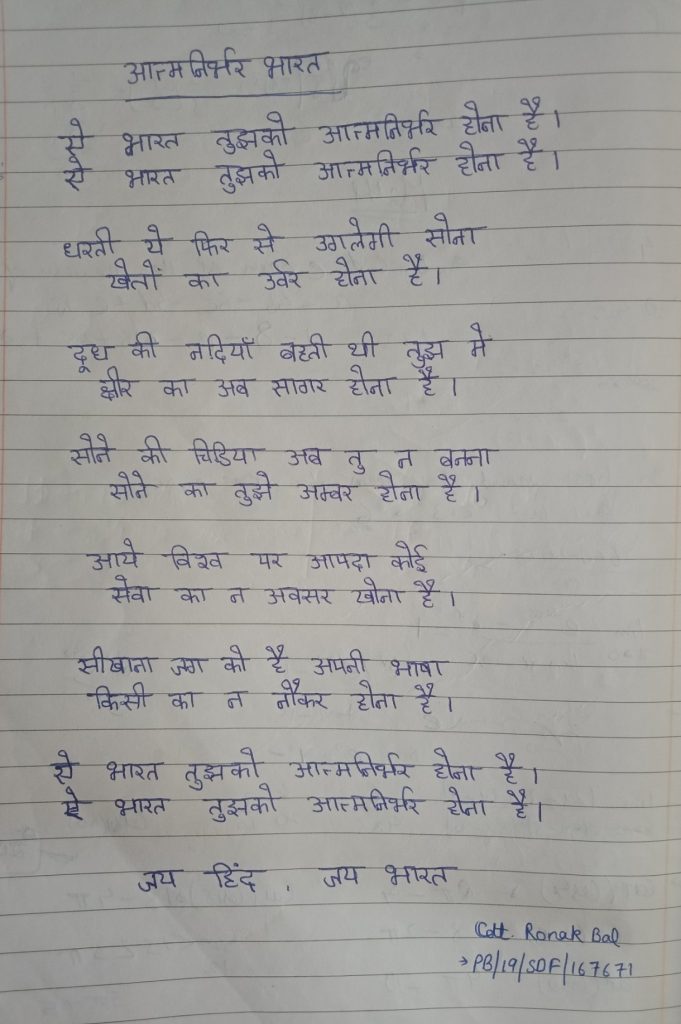 आत्मनिर्भर भारत
ऐ भारत तुझको आत्मनिर्भर होना है।
ऐ भारत तुझको आत्मनिर्भर होना है।
धरती ये फिर से उगलेगी सोना
खेतों का उर्वर होना है।
दूध की नदियाँ बहती थी तुझ मे
क्षीर का अब सागर होना है।
सोने की चिडिया अब तु न बनना
सोने का तुझे अम्बर होना है।
आये विश्व पर आपदा कोई
सेवा का न अवसर खोना है।
सीखाना जग को है अपनी भाषा
किसी का न नौकर होना है।
ऐ भारत तुझको आत्मनिर्भर होना है।
ऐ भारत तुझको आत्मनिर्भर होना है।
जय हिंद, जय भारत
Cdt. Ronak Bal
→ PB/19/SDF/167671